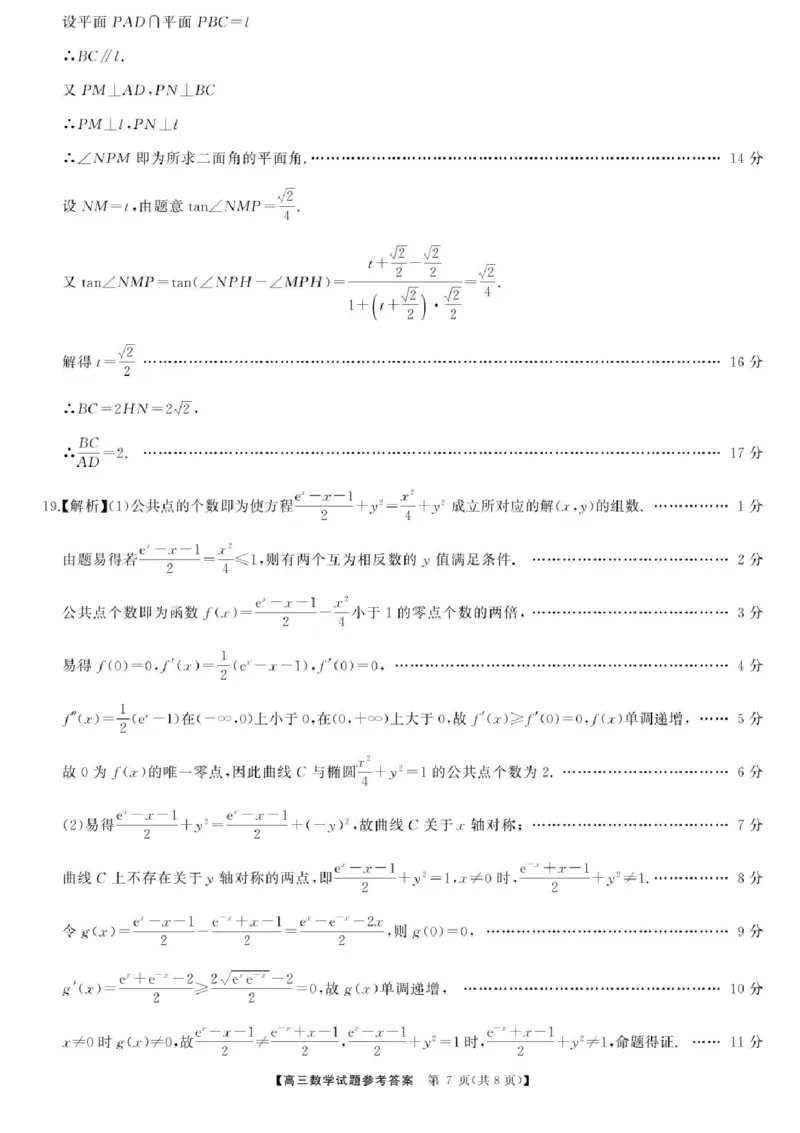 设平面 PAD∩平面 PBC=l
∴BC∥l.
又 PM⊥AD,PN⊥BC
∴PM⊥l,PN⊥l
∴∠NPM 即为所求二面角的平面角. …………………… 14 分
设 NM=t,由题意 tan∠NMP=√2/4.
又 tan∠NMP=tan(∠NPH−∠MPH)=(t+√2/2−√2/2)/(1+(t+√2/2)·√2/2)=√2/4.
解得 t=√2/2 …………………… 16 分
∴BC=2HN=2√2,
∴BC/AD=2. …………………… 17 分
19.【解析】(1)公共点的个数即为使方程(e^x−x−1)/2+y²=x²/4+y² 成立所对应的解(x,y)的组数. …………… 1 分
由题易得若(e^x−x−1)/2=x²/4≤1,则有两个互为相反数的 y 值满足条件. …………………… 2 分
公共点个数即为函数 f(x)=(e^x−x−1)/2−x²/4小于 1 的零点个数的两倍, …………………… 3 分
易得 f(0)=0,f′(x)=1/2(e^x−x−1),f′(0)=0, …………………… 4 分
f″(x)=1/2(e^x−1)在(−∞,0)上小于 0,在(0,+∞)上大于 0,故 f′(x)≥f′(0)=0,f(x)单调递增, …… 5 分
故 0 为 f(x)的唯一零点,因此曲线 C 与椭圆x²/4+y²=1 的公共点个数为 2. …………………… 6 分
(2)易得(e^x−x−1)/2+y²=(e^x−x−1)/2+(−y)²,故曲线 C 关于 x 轴对称; …………………… 7 分
曲线 C 上不存在关于 y 轴对称的两点,即(e^x−x−1)/2+y²=1,x≠0 时,(e^−x+x−1)/2+y²≠1. …………… 8 分
令 g(x)=(e^x−x−1)/2−(e^−x+x−1)/2=(e^x−e^−x−2x)/2,则 g(0)=0, …………………… 9 分
g′(x)=(e^x+e^−x−2)/2≥(2√(e^x e^−x)−2)/2=0,故 g(x)单调递增, …………………… 10 分
x≠0 时 g(x)≠0,故(e^x−x−1)/2≠(e^−x+x−1)/2,(e^x−x−1)/2+y²=1 时,(e^−x+x−1)/2+y²≠1,命题得证. …… 11 分
【高三数学试题参考答案 第 7 页(共 8 页)】